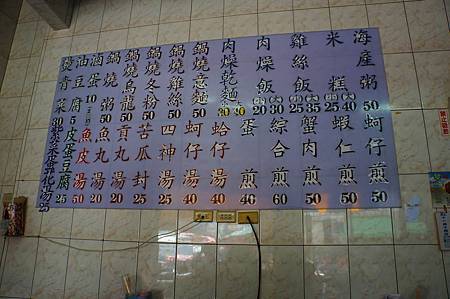 海產粥 50
米糕 25 40
雞絲飯 25 35
肉燥飯 20 30
肉燥乾麵 20 30
鍋燒意麵 50
鍋燒雞絲 50
鍋燒冬粉 50
鍋燒烏龍 50
滷蛋 10
油豆腐
燙青菜 30
蚵仔煎 50
蝦仁煎 50
蟹肉煎 50
綜合煎 50
蛋煎 40
蛤仔湯 40
蚵仔湯 40
四神湯 25
苦瓜封 25
貢丸湯 20
魚丸湯 20
魚皮湯 50
皮蛋豆腐 25